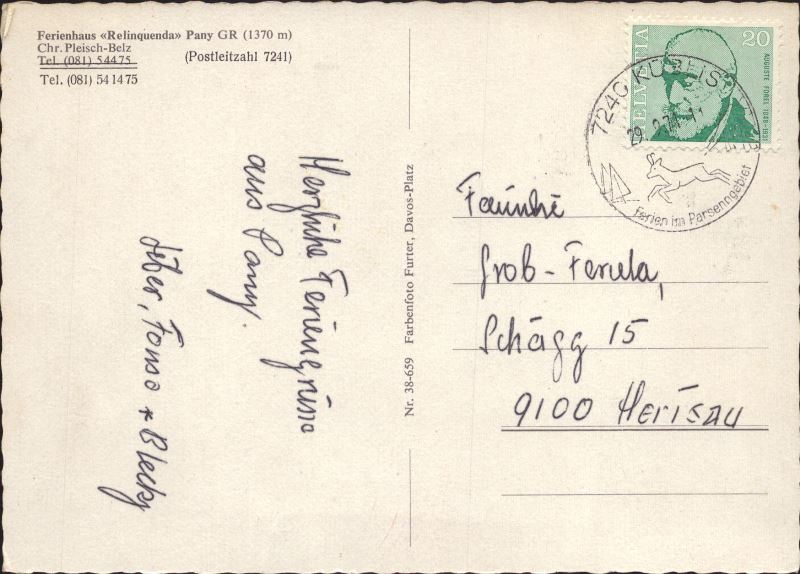 Ferienhaus «Relinquenda» Pany GR (1370 m)
Chr. Pleisch-Belz
Tel. (081) 54475
(Postleitzahl 7241)
Tel. (081) 541475
Herzliche Feriengrüsse
aus Pany.
Fonso + Blecky
Nr. 38-659 Farbenfoto Furter, Davos-Platz
HELVETIA
20
AUGUSTE FOREL 1848-1931
7240 KÜBLIS
Ferien im Parsenngebiet
Familie
Grob-Ferula,
Schägg 15
9100 Herisau